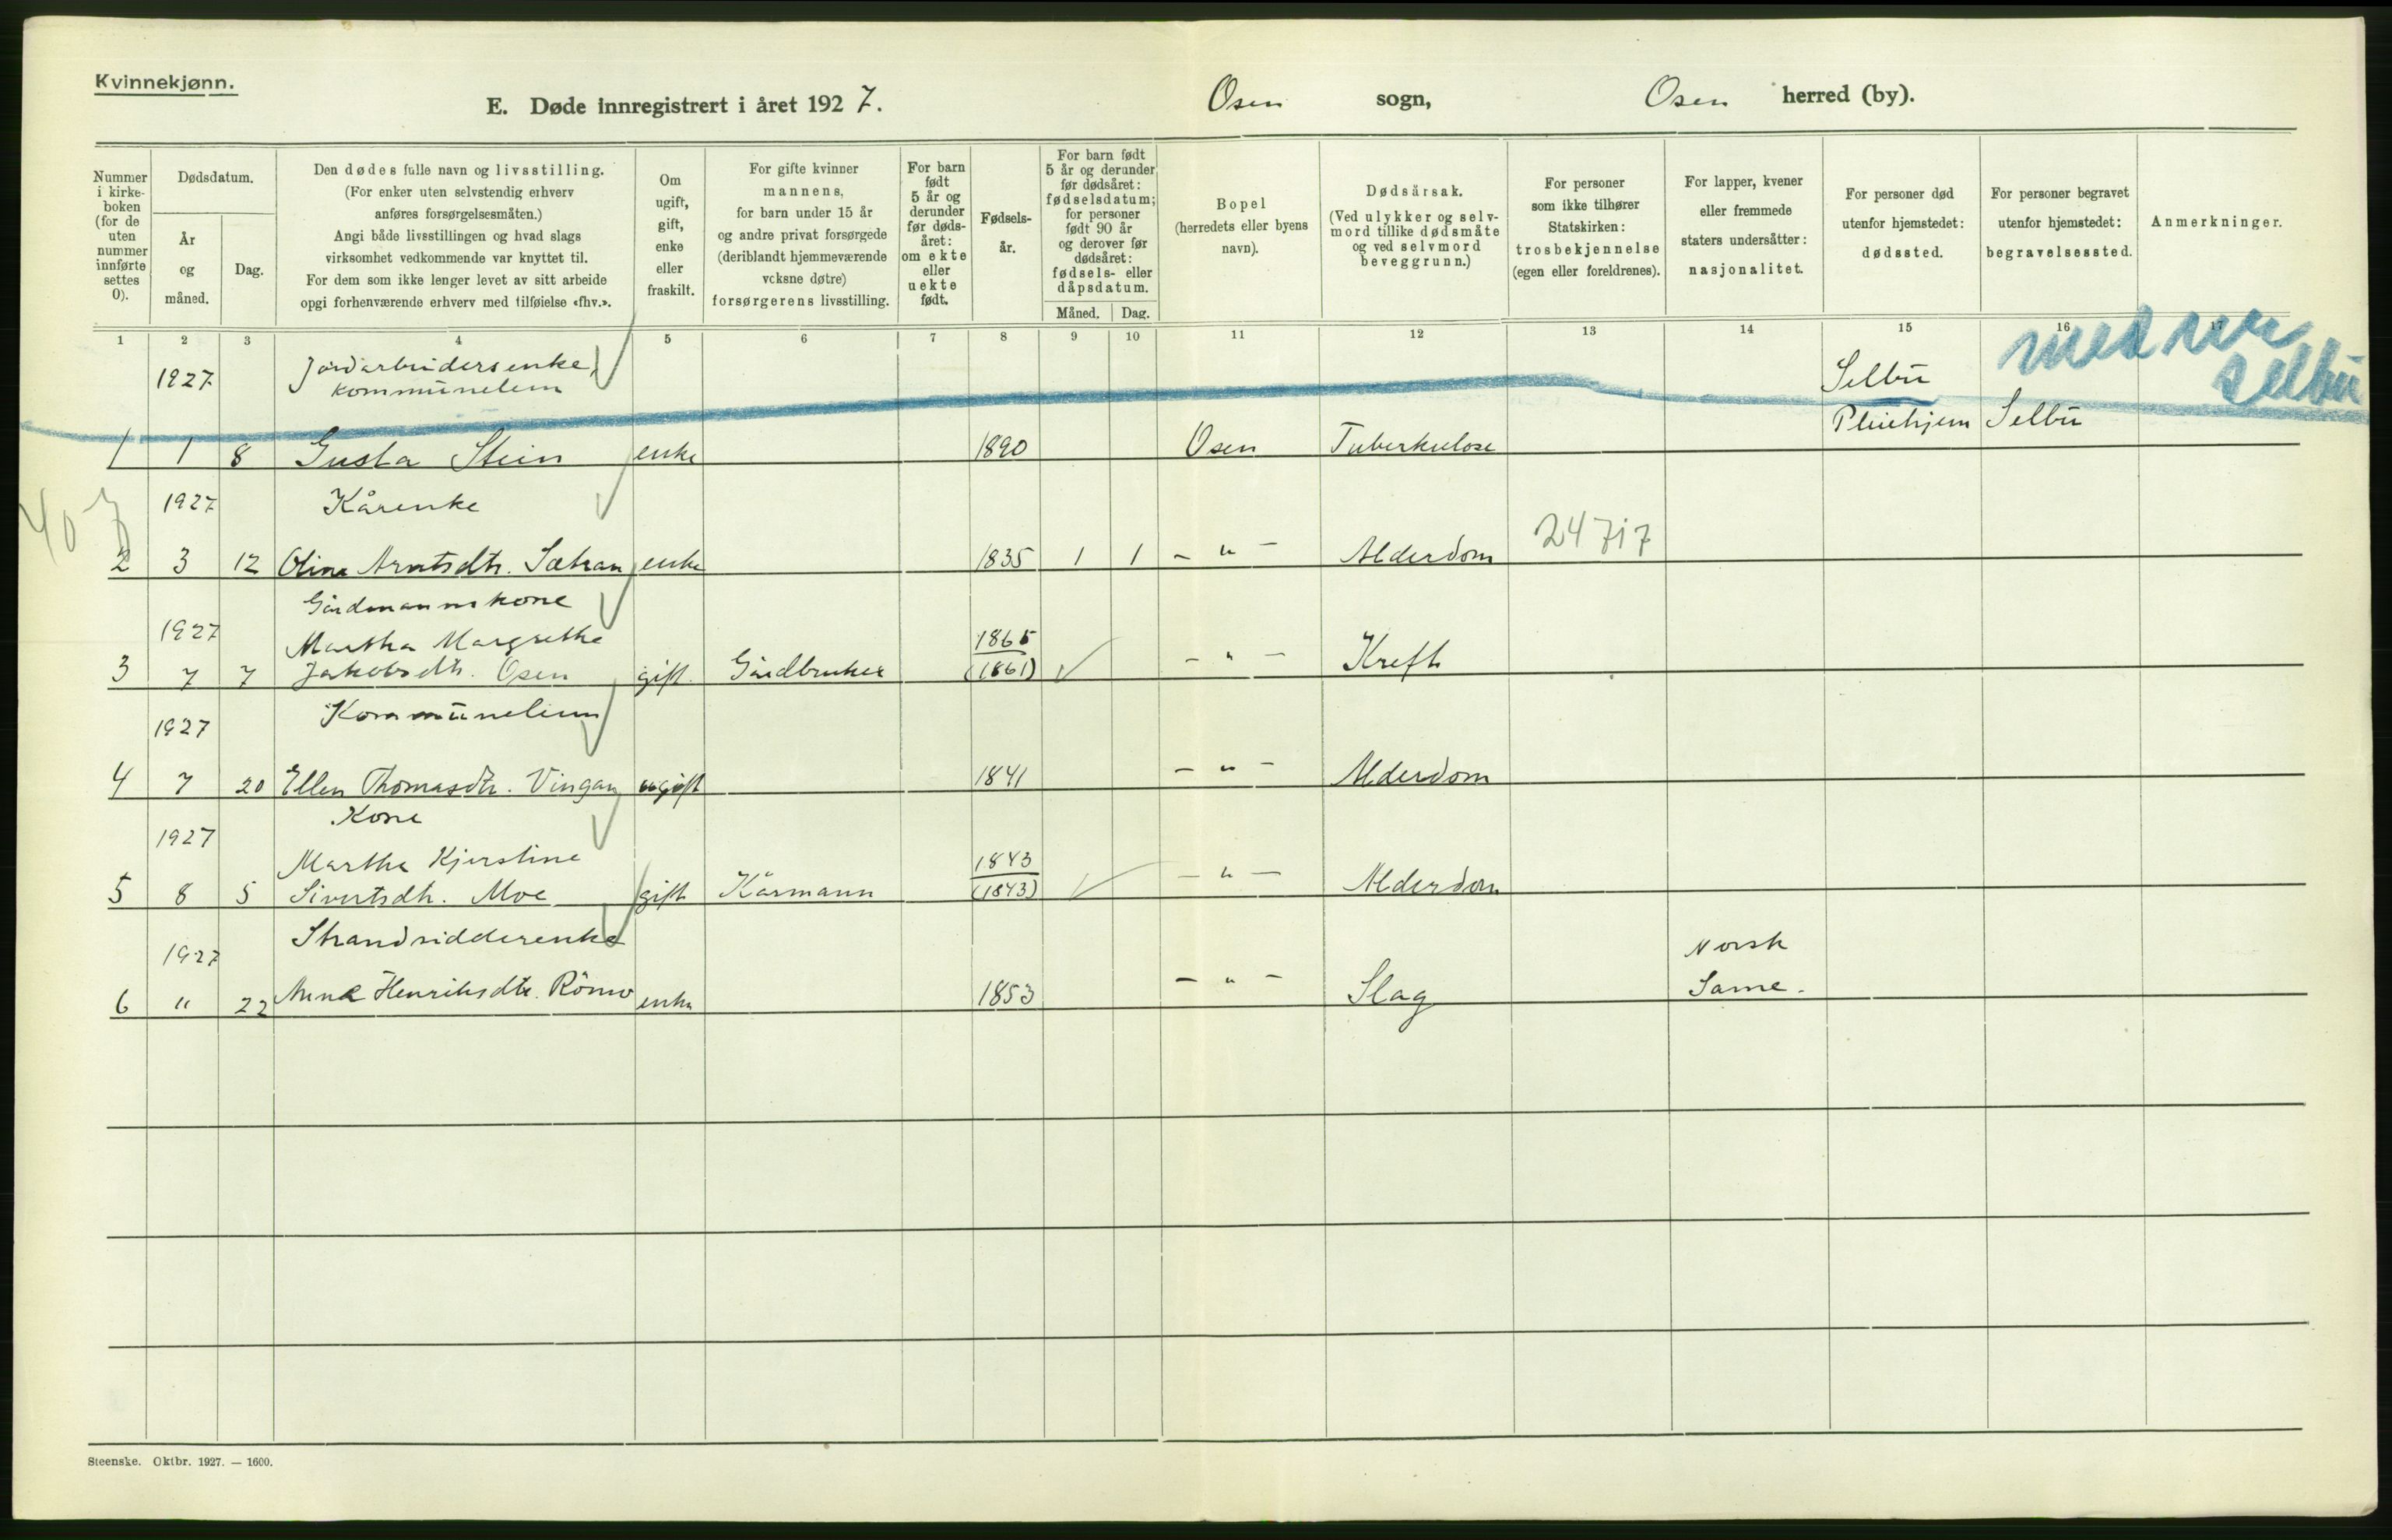 Kvinnekjønn.
E. Døde innregistrert i året 1927. Osen sogn, Osen herred (by).
Nummer i kirke-boken (for de uten nummer innførte settes 0).
Dødsdatum.
År og måned.
Dag.
Den dødes fulle navn og livsstilling.
(For enker uten selvstendig erhverv
anføres forsørgelsesmåten.)
Angi både livsstillingen og hvad slags
virksomhet vedkommende var knyttet til.
For dem som ikke lenger levet av sitt arbeide
opgi forhenværende erhverv med tilføielse «fhv.».
Om ugift, gift, enke eller fraskilt.
For gifte kvinner
mannens,
for barn under 15 år
og andre privat forsørgede
(deriblandt hjemmeværende
voksne døtre)
forsørgerens livsstilling.
For barn født 5 år og derunder før døds-året: om ekte eller uekte født.
Fødsels-år.
For barn født
5 år og derunder
før dødsåret:
fødselsdatum;
for personer
født 90 år
og derover før
dødsåret:
fødsels- eller
dåpsdatum.
Måned. Dag.
Bopel
(herredets eller byens
navn).
Dødsårsak.
(Ved ulykker og selv-
mord tillike dødsmåte
og ved selvmord
beveggrunn.)
For personer
som ikke tilhører
Statskirken:
trosbekjennelse
(egen eller foreldrenes).
For lapper, kvener
eller fremmede
staters undersåtter:
nasjonalitet.
For personer død
utenfor hjemstedet:
dødssted.
For personer begravet
utenfor hjemstedet:
begravelsessted.
Anmerkninger.
1 2 3 4 5 6 7 8 9 10 11 12 13 14 15 16 17
1927 Jordarbeidersenke, Selbu
kommunelem
Selbu
Pleiehjem Selbu
1 1 8 Gusta Stein enke 1890 Osen Tuberkulose
1927 Kårenke
407
24717
2 3 12 Olina Arntsdtr. Sætran enke 1835 1 1 - " - Alderdom
Gårdmannskone
1927 Martha Margrethe 1865
3 7 7 Jakobsdtr. Osen gift. Gårdbruker (1861) - " - Kreft
1927 Kommunelem
4 7 20 Ellen Thomasdtr. Vingan ugift 1841 - " - Alderdom
Kone
1927 Martha Kjerstine 1843
5 8 5 Sivertsdtr. Moe gift Kårmann (1843) - " - Alderdom
1927 Strandsidderenke Norsk
6 " 22 Anna Henriksdtr. Römo enke 1853 - " - Slag Same.
Steenske. Oktbr. 1927. — 1600.